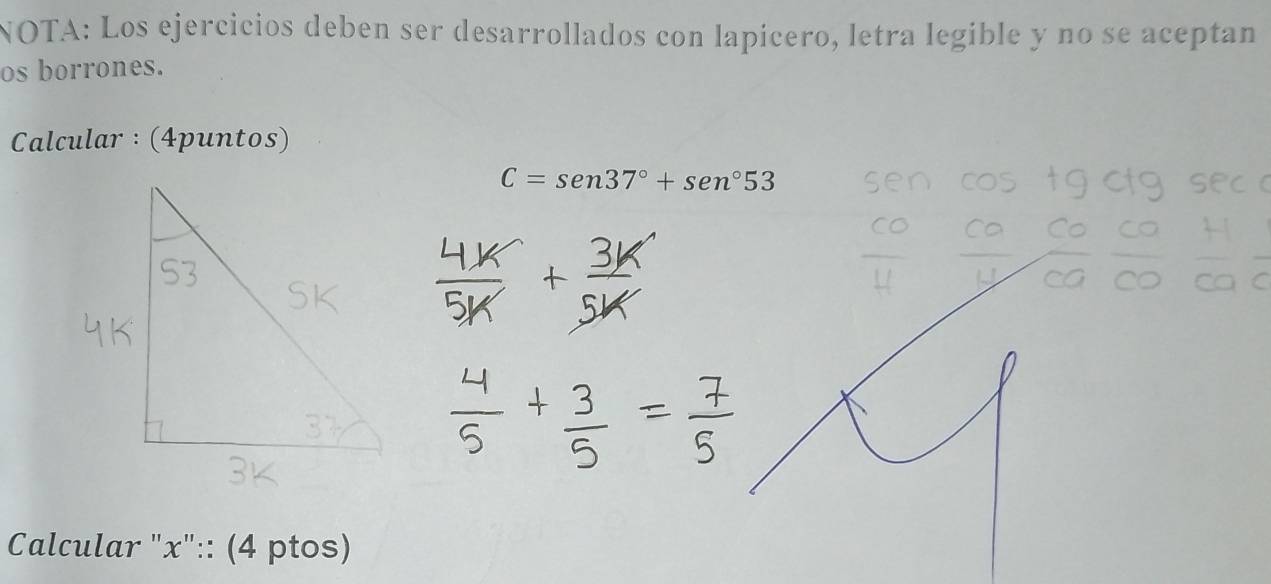 NOTA: Los ejercicios deben ser desarrollados con lapicero, letra legible y no se aceptan
os borrones.
Calcular : (4puntos)
C = sen37° + sen°53
sen cos tg ctg sec
co/H ca/H co/ca ca/co H/ca
53
4K
5K
37
3K
4K/5K + 3K/5K
4/5 + 3/5 = 7/5
Calcular "x":: (4 ptos)